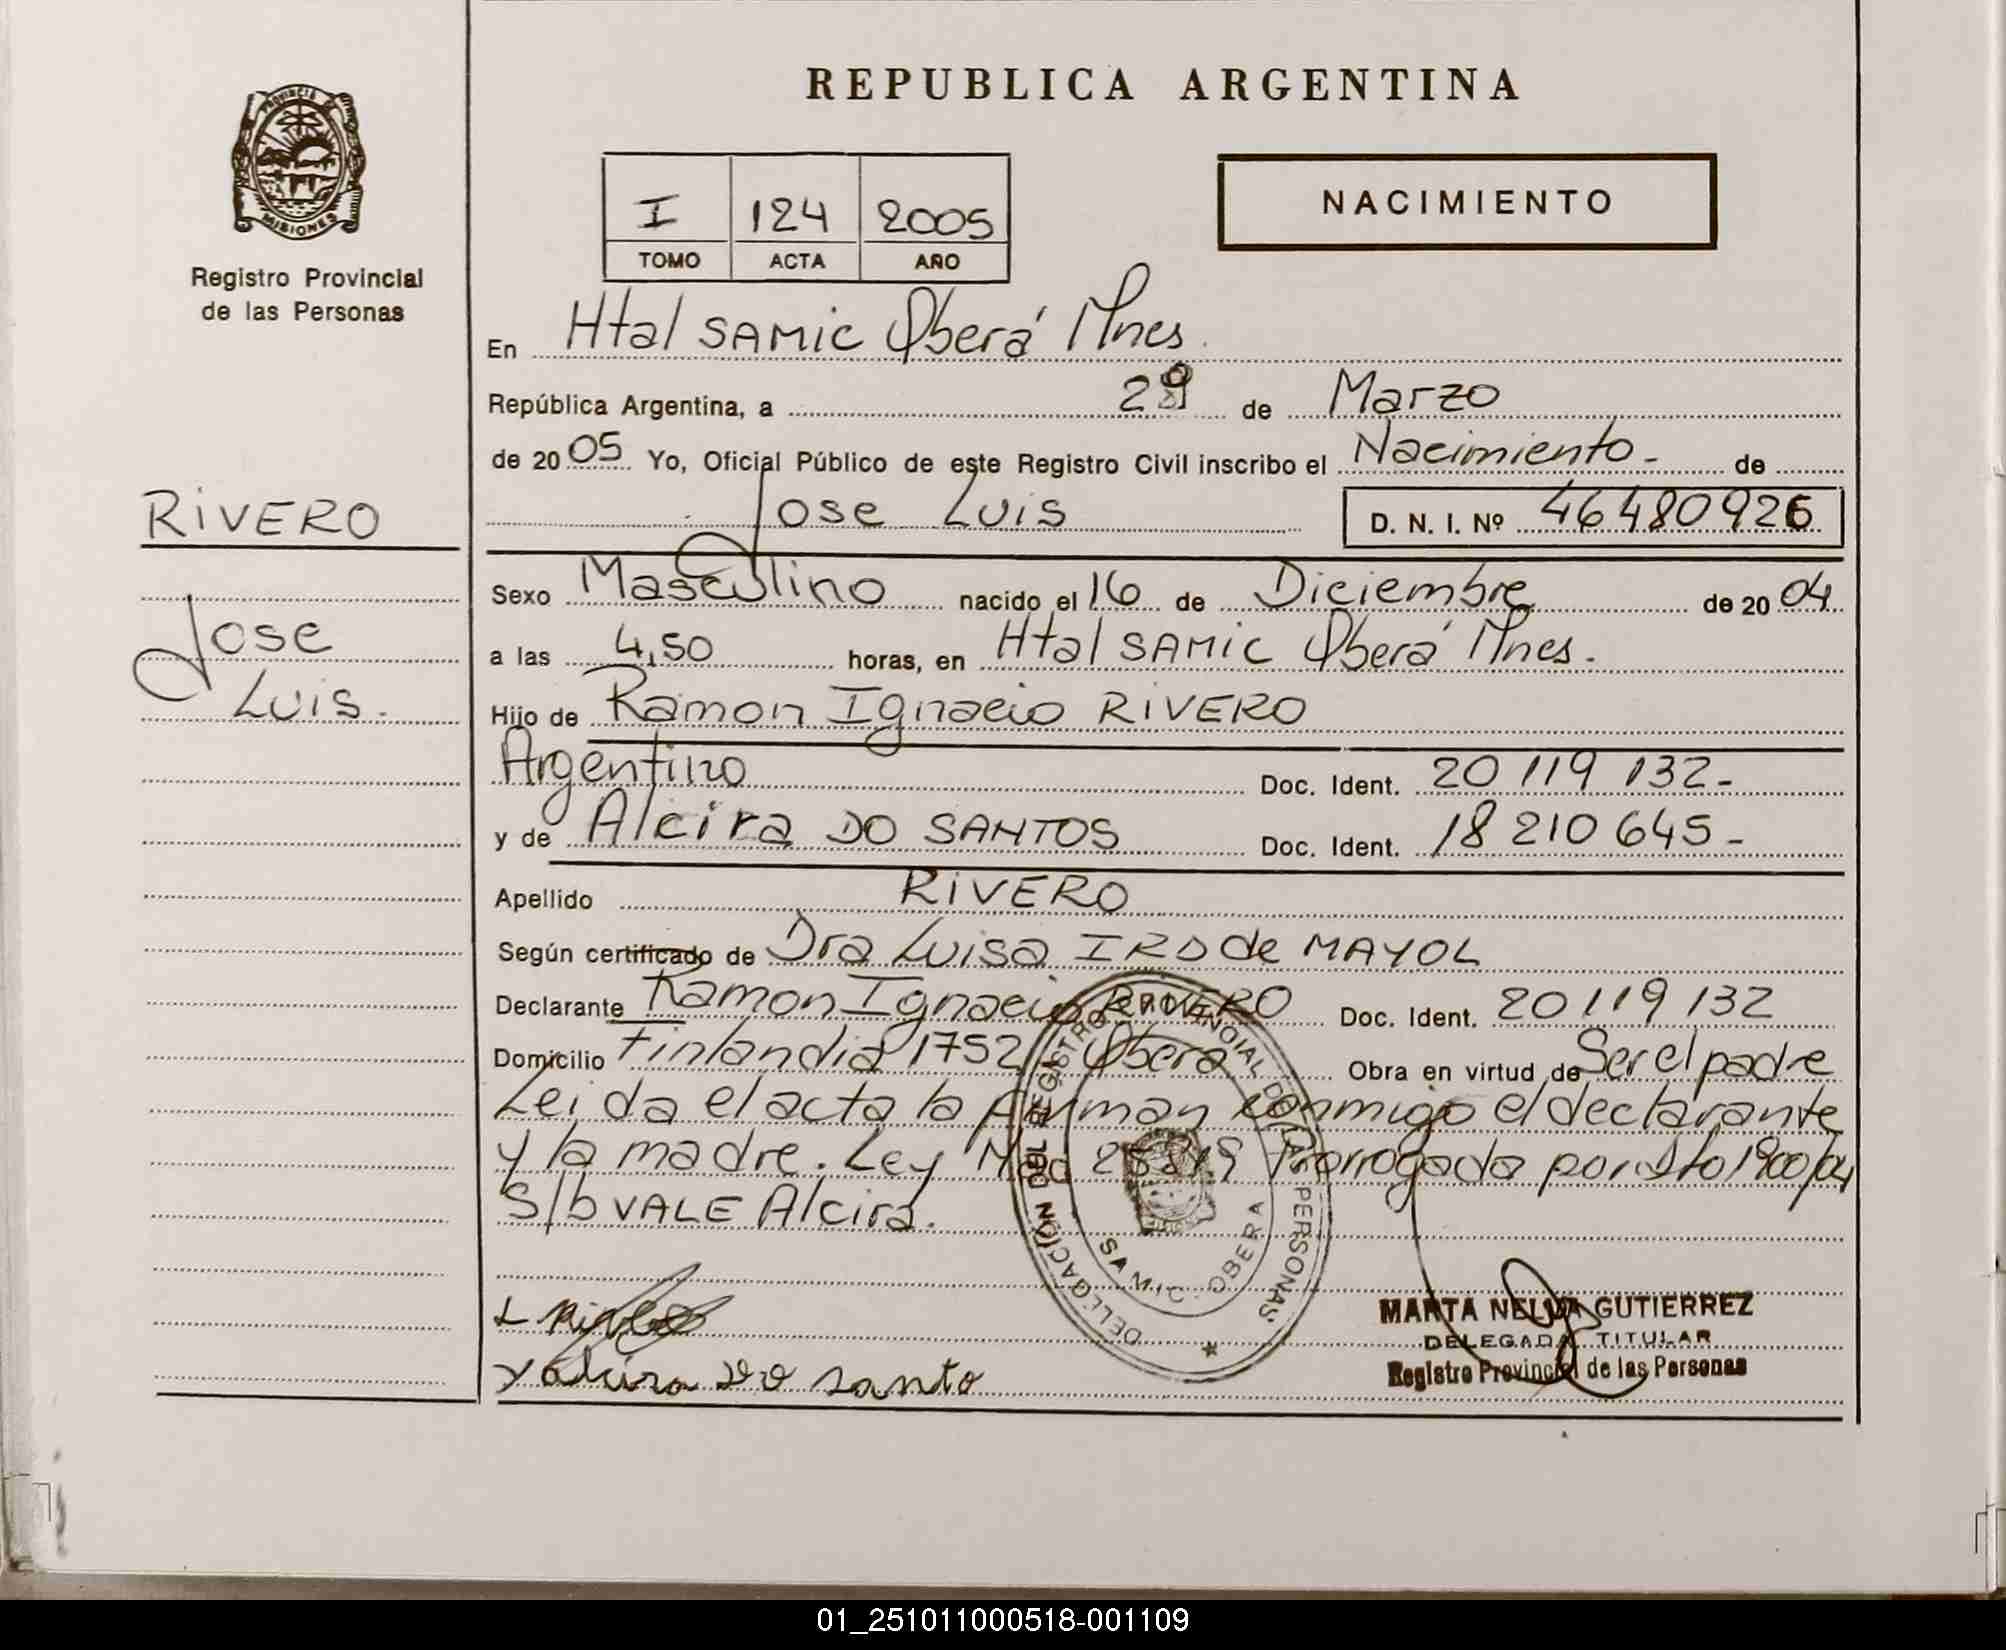 REPUBLICA ARGENTINA
PROVINCIA DE MISIONES
Registro Provincial
de las Personas
I 124 2005
TOMO ACTA AÑO
NACIMIENTO
En Htal SAMIC Oberá Mnes.
República Argentina, a 29 de Marzo
de 2005 Yo, Oficial Público de este Registro Civil inscribo el Nacimiento - de
Jose Luis D. N. I. Nº 46480926
RIVERO
Jose
Luis.
Sexo Masculino nacido el 16 de Diciembre de 2004
a las 4,50 horas, en Htal SAMIC Oberá Mnes.
Hijo de Ramon Ignacio RIVERO
Argentino Doc. Ident. 20 119 132-
y de Alcira DO SANTOS Doc. Ident. 18 210 645-
Apellido RIVERO
Según certificado de Dra Luisa IRD de MAYOL
Declarante Ramon Ignacio RIVERO Doc. Ident. 20 119 132
Domicilio Finlandia 1752 Obera Obra en virtud de Ser el padre
Leida el acta la firman conmigo el declarante
y la madre. Ley Prorrogada por Dto 1900/04
S/b VALE Alcira.
DELEGACIÓN DEL REGISTRO PROVINCIAL DE LAS PERSONAS
SAMIC - OBERA
Alcira Do santo
MARTA NELIDA GUTIERREZ
DELEGADA TITULAR
Registro Provincial de las Personas
01_251011000518-001109